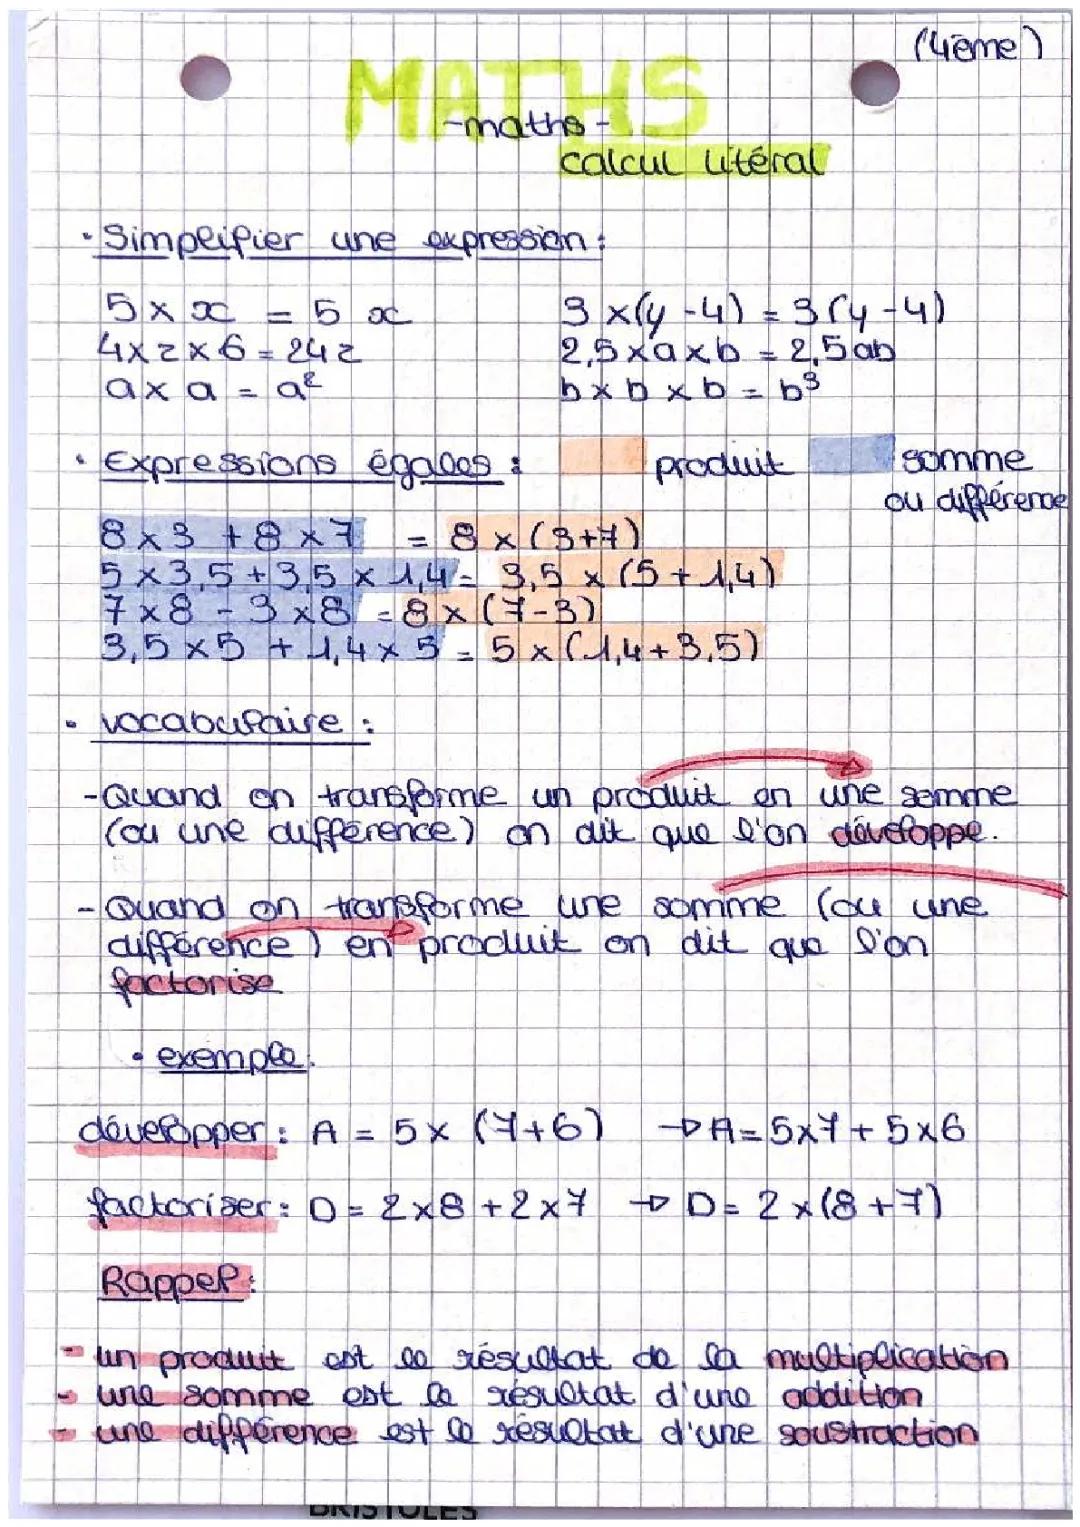 (4ème)
MATHS
-maths-
calcul litéral
• Simplifier une expression :
5 × x = 5 x
3 ×(y -4) = 3(y -4)
4×z×6 = 24z
2,5×a×b = 2,5ab
a× a = a²
b×b×b = b³
• Expressions égales :
produit
somme
ou différence
8×3 +8×7 = 8×(3+7)
5×3,5+3,5×1,4= 3,5×(5+1,4)
7×8 - 3×8 =8×(7-3)
3,5×5 + 1,4×5 = 5×(1,4+3,5)
• vocabulaire :
-Quand on transforme un produit en une somme
(ou une différence) on dit que l'on développe.
- Quand on transforme une somme (ou une
différence) en produit on dit que l'on
factorise
• exemple.
développer : A = 5× (7+6) → A= 5×7 + 5×6
factoriser : D = 2×8 +2×7 → D= 2×(8+7)
Rappel :
- un produit est le résultat de la multiplication
- une somme est le résultat d'une addition
- une différence est le résultat d'une soustraction
BRISTOLES